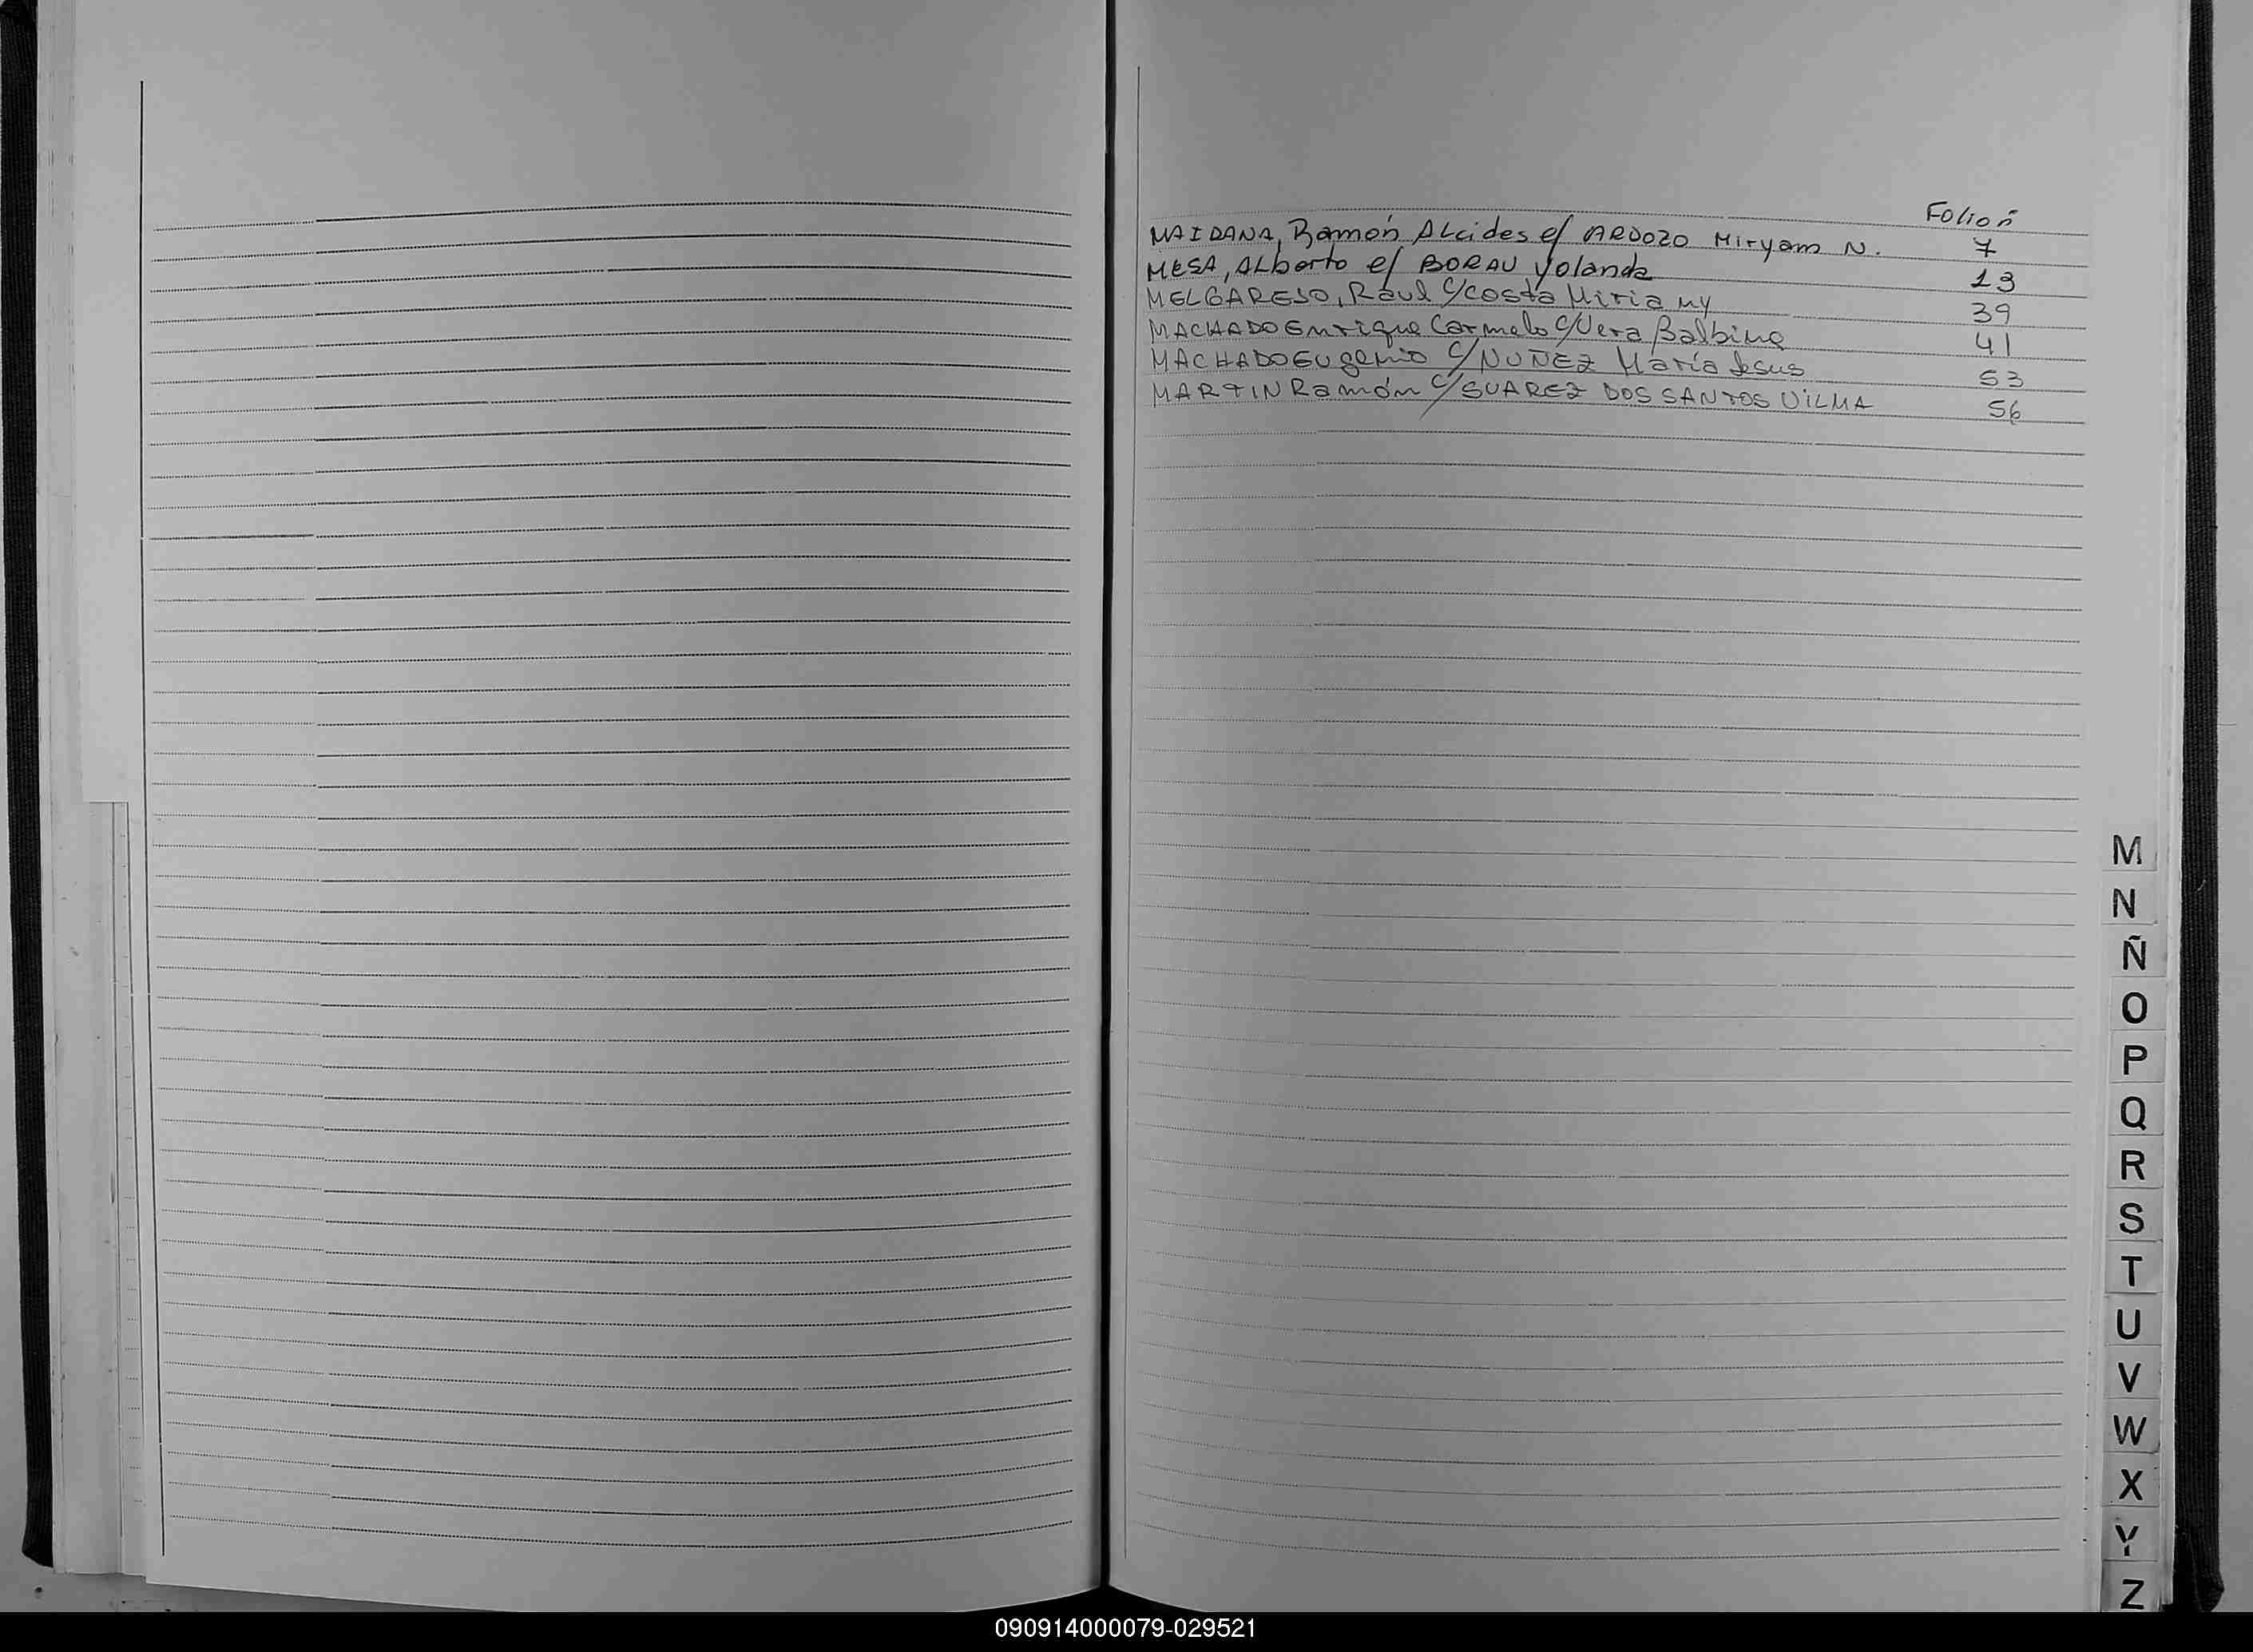 Folio n
MAIDANA, Ramón ALcides c/ ARDOZO Miryam N. 7
MESA, ALberto c/ BORAU Yolanda 13
MELGAREJO, Raul c/Costa Miria
39
MACHADO Enrique Carmelo c/Vera Balbina 41
MACHADO Eugenio c/ NUÑEZ María Jesus 53
MARTIN Ramón c/ SUAREZ DOS SANTOS VILMA 56
M
N
Ñ
O
P
Q
R
S
T
U
V
W
X
Y
Z
090914000079-029521